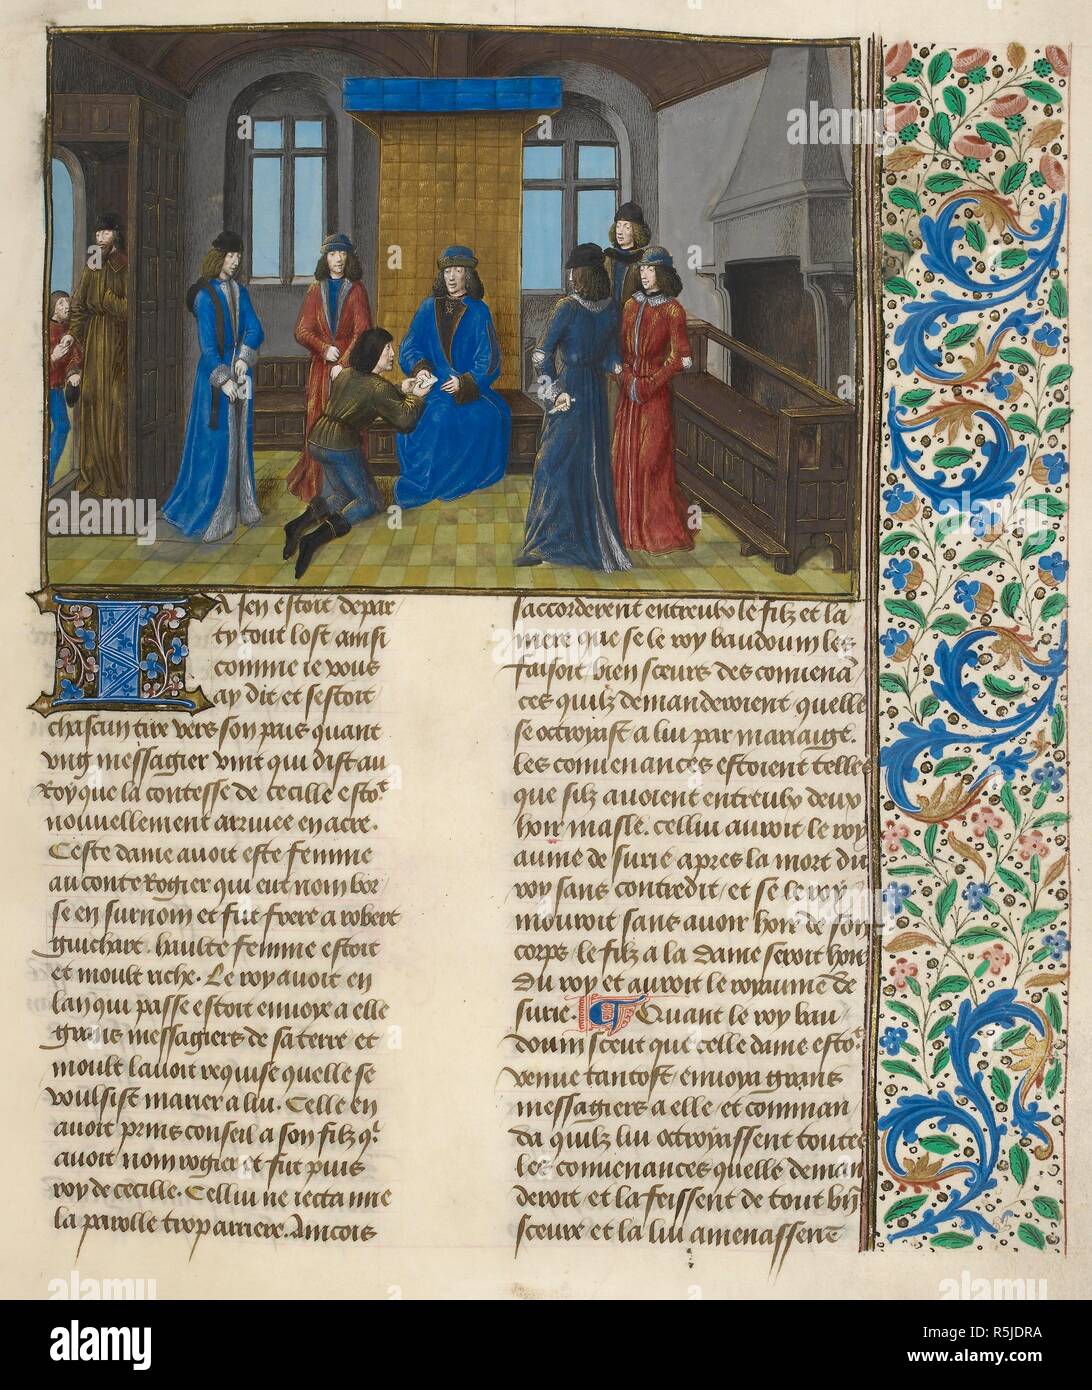 A sen estoit depar
ty tout lost ainsi
comme ie vous
ay dit et sestoit
chascun tire vers son pais quant
vng messagier vint qui dist au
Roy que la contesse de cecille esto
nouuellement arriuee en acre.
Ceste dame auoit este femme
au conte Rogier qui eut nom bor
se en surnom et fut frere a robert
guichart. haulte femme estoit
et moult riche. Le roy auoit en
lan qui passe estoit enuoye a elle
grans messagiers de sa terre et
moult lauoit requise quelle se
voulsist marier a lui. Celle en
auoit prins conseil a son filz q
auoit nom rogier et fut puis
roy de cecille. Cellui ne iecta mie
la parolle trop arriere. Aincois
saccorderent entreulx le filz et la
mere que se le roy baudouin les
faisoit bien sceurs des conuenan
ces quilz demanderoient quelle
se octroyast a lui par mariaige.
Les conuenances estoient telles
que silz auoient entreulx deux
hoir masle. cellui auroit le roy
aume de surie apres la mort du
roy sans contredit, et se le roy
mouroit sans auoir hoir de son
corps. le filz a la dame seroit hoir
du roy et auroit le royaume de
surie. Quant le roy bau
douin sceut que celle dame esto
venue tantost, enuoya grans
messagiers a elle et comman
da quilz lui octroyassent toutes
les conuenances quelle deman
deroit et la feissent de tout bn
sceure et la lui amenassent
alamy
Image ID: R5JDRA
www.alamy.com